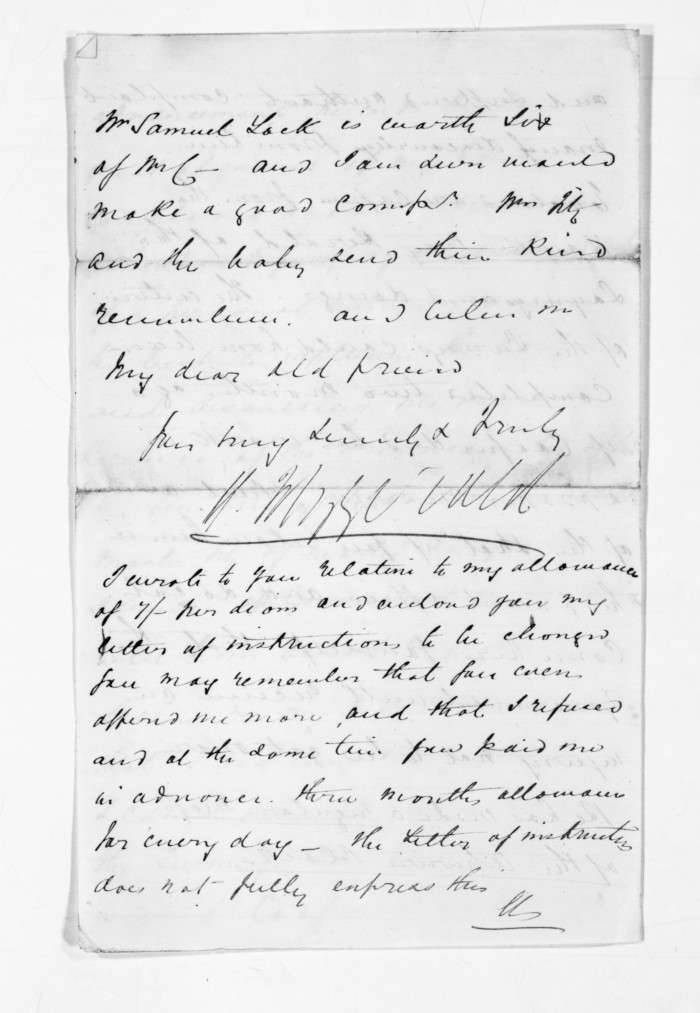 Mr Samuel Lock is worth Six
of Mr C— and I am sure would
make a good Comr. Mrs Fitz
and the baby send their kind
remembrance. and believe me
My dear old friend
Yours very Sincerely & Truly
Fitzgerald
I wrote to you relative to my allowance
of 7/- per diem and enclosed you my
letter of instructions to be changed
you may remember that you even
offered me more, and that I refused
and at the same time you paid me
in advance. three months allowance
for every day — the Letter of instructions
does not fully express this